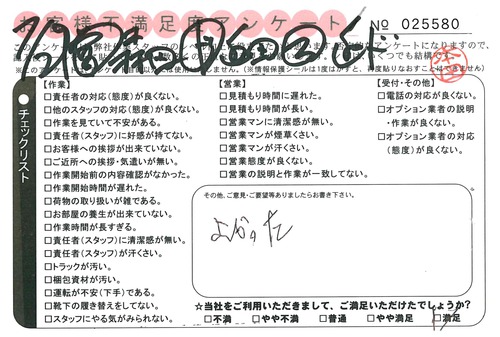 お客様不満足度アンケート
№ 025580
チェックリスト
【作業】
□責任者の対応(態度)が良くない。
□他のスタッフの対応(態度)が良くない。
□作業を見ていて不安がある。
□責任者(スタッフ)に好感が持てない。
□お客様への挨拶が出来ていない。
□ご近所への挨拶・気遣いが無い。
□作業開始前の内容確認がなかった。
□作業開始時間が遅れた。
□荷物の取り扱いが雑である。
□お部屋の養生が出来ていない。
□作業時間が長すぎる。
□責任者(スタッフ)に清潔感が無い。
□責任者(スタッフ)が汗くさい。
□トラックが汚い。
□梱包資材が汚い。
□運転が不安(下手)である。
□靴下の履き替えをしてない。
□スタッフにやる気がみられない。
【営業】
□見積もり時間に遅れた。
□見積もり時間が長い。
□営業マンに清潔感が無い。
□営業マンが煙草くさい。
□営業マンが汗くさい。
□営業態度が良くない。
□営業の説明と作業が一致してない。
【受付・その他】
□電話の対応が良くない。
□オプション業者の説明
・作業が良くない。
□オプション業者の対応
(態度)が良くない。
その他、ご意見・ご要望等ありましたらお書き下さい。
よかった
☆当社をご利用いただきまして、ご満足いただけたでしょうか?
□不満 □やや不満 □普通 □やや満足 □満足